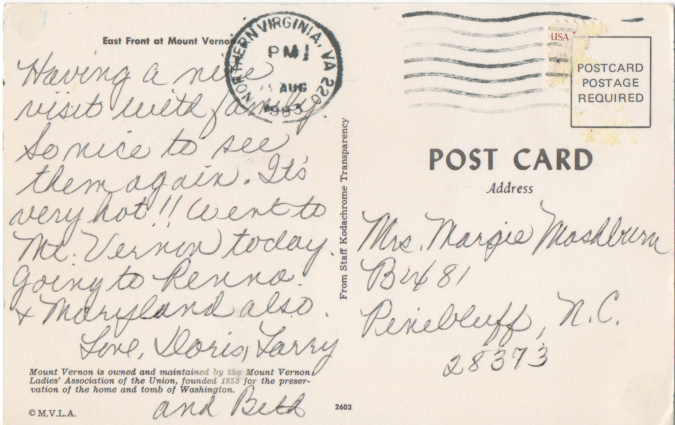 East Front at Mount Vernon
Having a nice
visit with family.
So nice to see
them again. It's
very hot!! Went to
Mt. Vernon today.
Going to Penna.
& Maryland also.
Love, Doris, Larry
and Beth
Mount Vernon is owned and maintained by the Mount Vernon
Ladies' Association of the Union, founded 1853 for the preser-
vation of the home and tomb of Washington.
© M.V.L.A.
2603
From Staff Kodachrome Transparency
NORTHERN VIRGINIA, VA 220
PM
AUG
1983
USA
POSTCARD
POSTAGE
REQUIRED
POST CARD
Address
Mrs. Margie Mashburn
Bx 481
Pinebluff, N.C.
28373